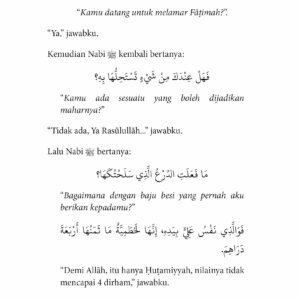 “Kamu datang untuk melamar Fāṭimah?”.
“Ya,” jawabku.
Kemudian Nabi ﷺ kembali bertanya:
فَهَلْ عِنْدَكَ مِنْ شَيْءٍ تَسْتَحِلُّهَا بِهِ؟
“Kamu ada sesuatu yang boleh dijadikan
maharnya?”
“Tidak ada, Ya Rasūlullāh...” jawabku.
Lalu Nabi ﷺ bertanya:
مَا فَعَلَتِ الدِّرْعُ الَّذِي سَلَّحْتُكَهَا؟
“Bagaimana dengan baju besi yang pernah aku
berikan kepadamu?”
فَوَالَّذِي نَفْسُ عَلِيٍّ بِيَدِهِ، إِنَّهَا لَحُطَمِيَّةٌ مَا ثَمَنُهَا أَرْبَعَةُ
دَرَاهِمَ.
“Demi Allāh, itu hanya Ḥuṭamiyyah, nilainya tidak
mencapai 4 dirham,” jawabku.